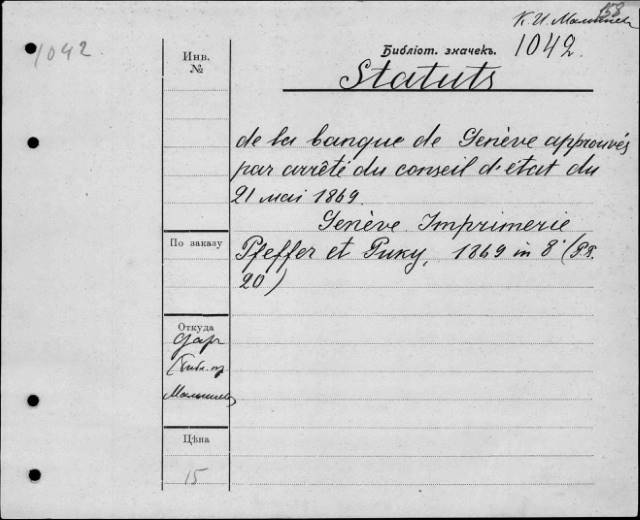 153
К. И. Малышев
1042
Инв.
№
Библіот. значекъ.
1042.
Statuts
de la banque de Genève approuvés
par arrêté du conseil d'état du
21 mai 1869.
Genève Imprimerie
По заказу
Pfeffer et Puky, 1869 in 8° (
20)
Откуда
Дар
Малышев
Цѣна
15